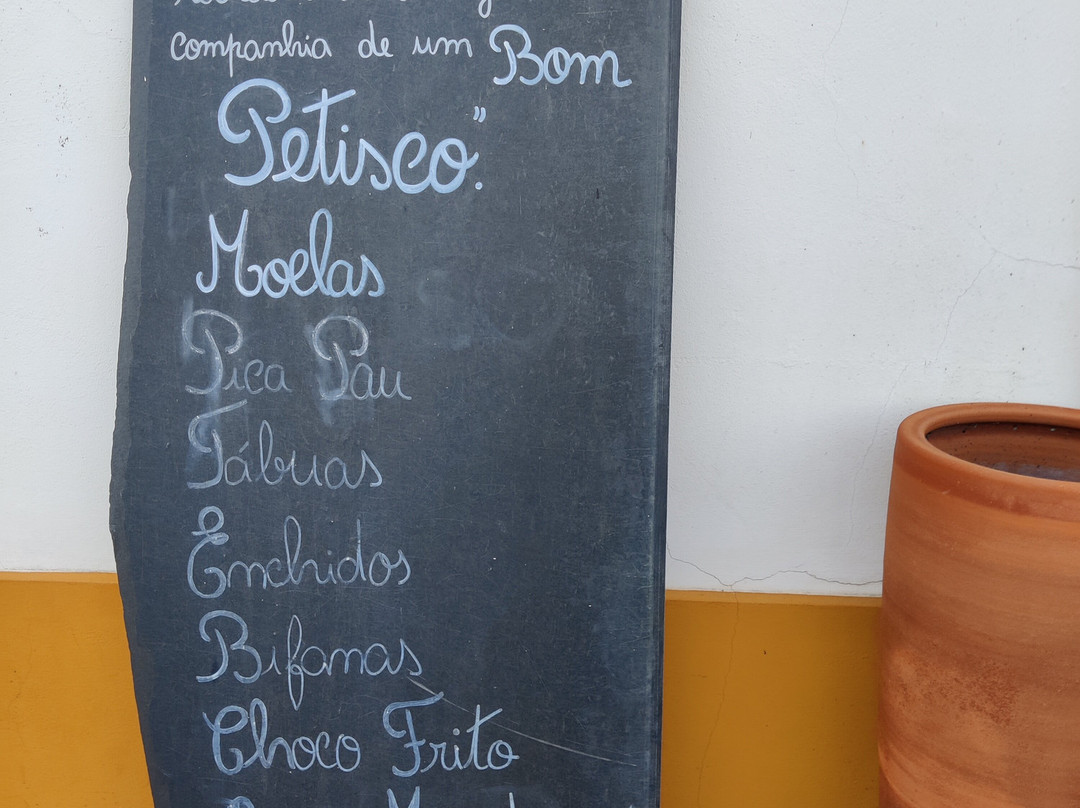 companhia de um Bom
Petisco."
Moelas
Pica Pau
Tábuas
Enchidos
Bifanas
Choco Frito